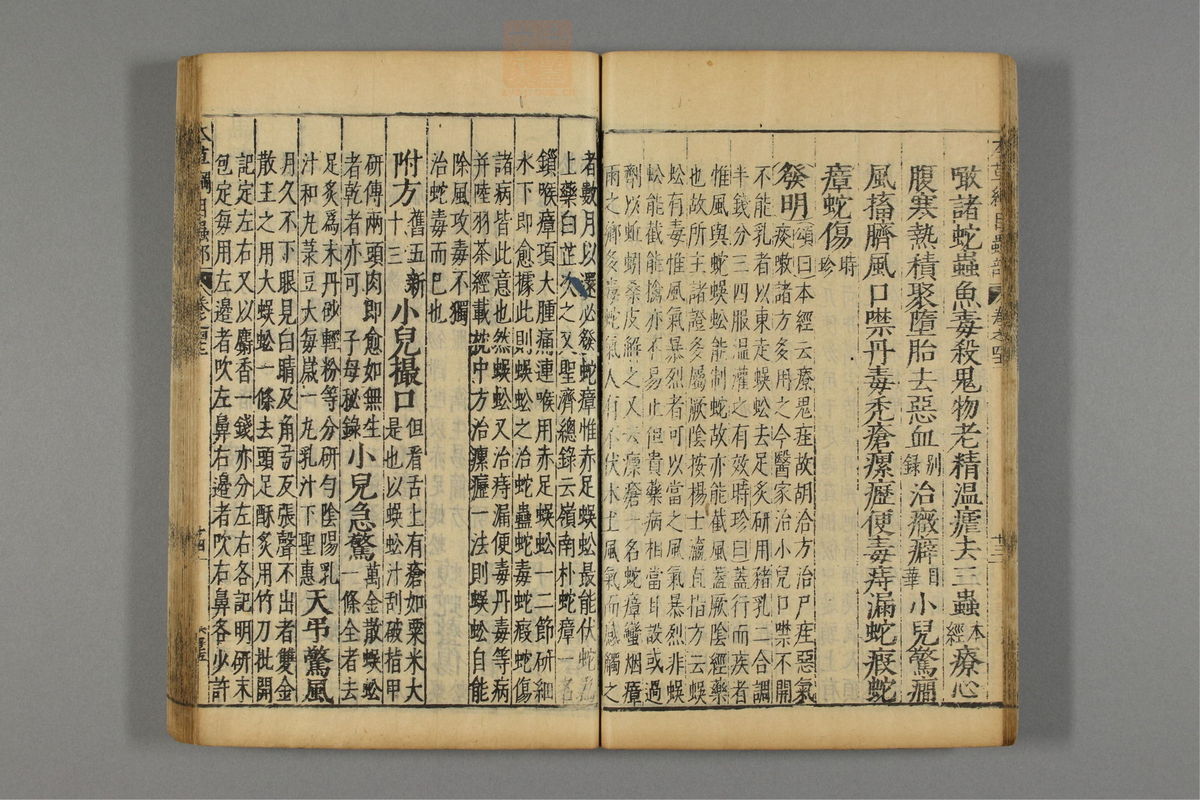 本草綱目蟲部 卷之四十二 廿三
噉諸蛇蟲魚毒殺鬼物老精溫瘧去三蟲本經療心
腹寒熱積聚墮胎去惡血別錄治癥癖日華小兒驚癇
風搐臍風口噤丹毒禿瘡瘰癧便毒痔漏蛇瘕蛇
瘴蛇傷時珍
發明頌曰本經云療鬼疰故胡洽方治尸疰惡氣
痰嗽諸方多用之今醫家治小兒口噤不開
不能乳者以東走蜈蚣去足炙研用豬乳二合調
半錢分三四服溫灌之有效時珍曰蓋行而疾者
惟風與蛇蜈蚣能制蛇故亦能截風蓋厥陰經藥
也故所主諸證多屬厥陰按楊士瀛直指方云蜈
蚣有毒惟風氣暴烈者可以當之風氣暴烈非蜈
蚣能截能擒亦不易止但貴藥病相當耳設或過
劑以蚯蚓桑皮解之又云瘭瘡一名蛇瘴蠻烟瘴
雨之鄉多毒蛇氣人有不伏水土風氣而感觸之
者數月以還必發蛇瘴惟赤足蜈蚣最能伏蛇為
上藥白芷次之又聖濟總錄云嶺南朴蛇瘴一名
鎖喉瘴項大腫痛連喉用赤足蜈蚣一二節研細
水下即愈據此則蜈蚣之治蛇蠱蛇毒蛇瘕蛇傷
諸病皆此意也然蜈蚣又治痔漏便毒丹毒等病
并陸羽茶經載枕中方治瘰癧一法則蜈蚣自能
除風攻毒不獨
治蛇毒而巳也
附方舊五新十三小兒撮口但看舌上有瘡如粟米大
是也以蜈蚣汁刮破指甲
研傅兩頭肉即愈如無生
者乾者亦可 子母秘錄小兒急驚萬金散蜈蚣
一條全者去
足炙爲末丹砂輕粉等分研勻陰陽乳
汁和丸菉豆大每歲一丸乳汁下聖惠天弔驚風
月久不下眼見白睛及角弓反張聲不出者雙金
散主之用大蜈蚣一條去頭足酥炙用竹刀批開
記定左右又以麝香一錢亦分左右各記明研末
包定每用左邊者吹左鼻右邊者吹右鼻各少許
本草綱目蟲部 卷之四十二 廿四